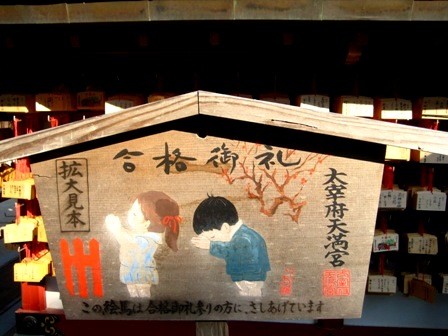 合格御礼
拡大見本
太宰府天満宮
この絵馬は合格御礼参りの方に、さしあげています